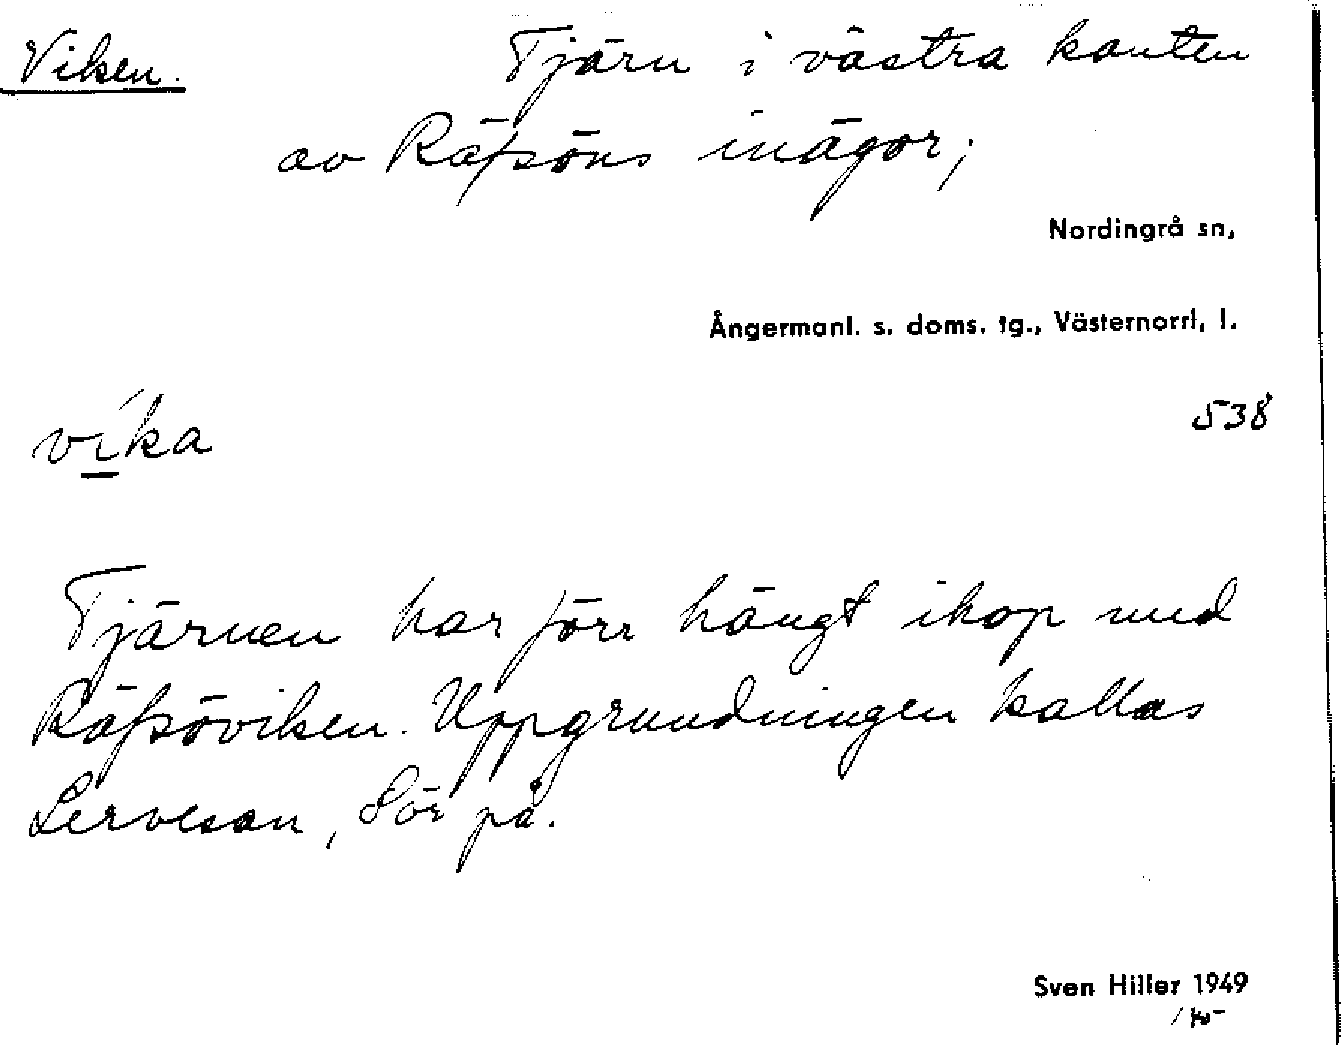 Viken. Tjärn i västra kanten
av Räfsöns inägor;
Nordingrå sn,
Ångermanl. s. doms. tg., Västernorrl. l.
538
víka
Tjärnen har förr hängt ihop med
Räfsöviken. Uppgrundningen kallas
Lervesan, Sör på.
Sven Hiller 1949